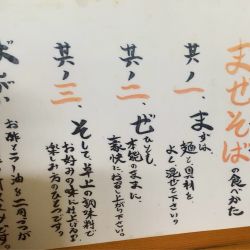 まぜそばの食べかた
其ノ一、まずは、
麺と具材を
よく混ぜて下さい。
其ノ二、ぜひとも、
本能のままに、
豪快にお召し上がり下さい。
其ノ三、そして、卓上の調味料で
お好みの味に仕上げるのも
楽しみ方のひとつです。
お酢とラー油を二周づつが